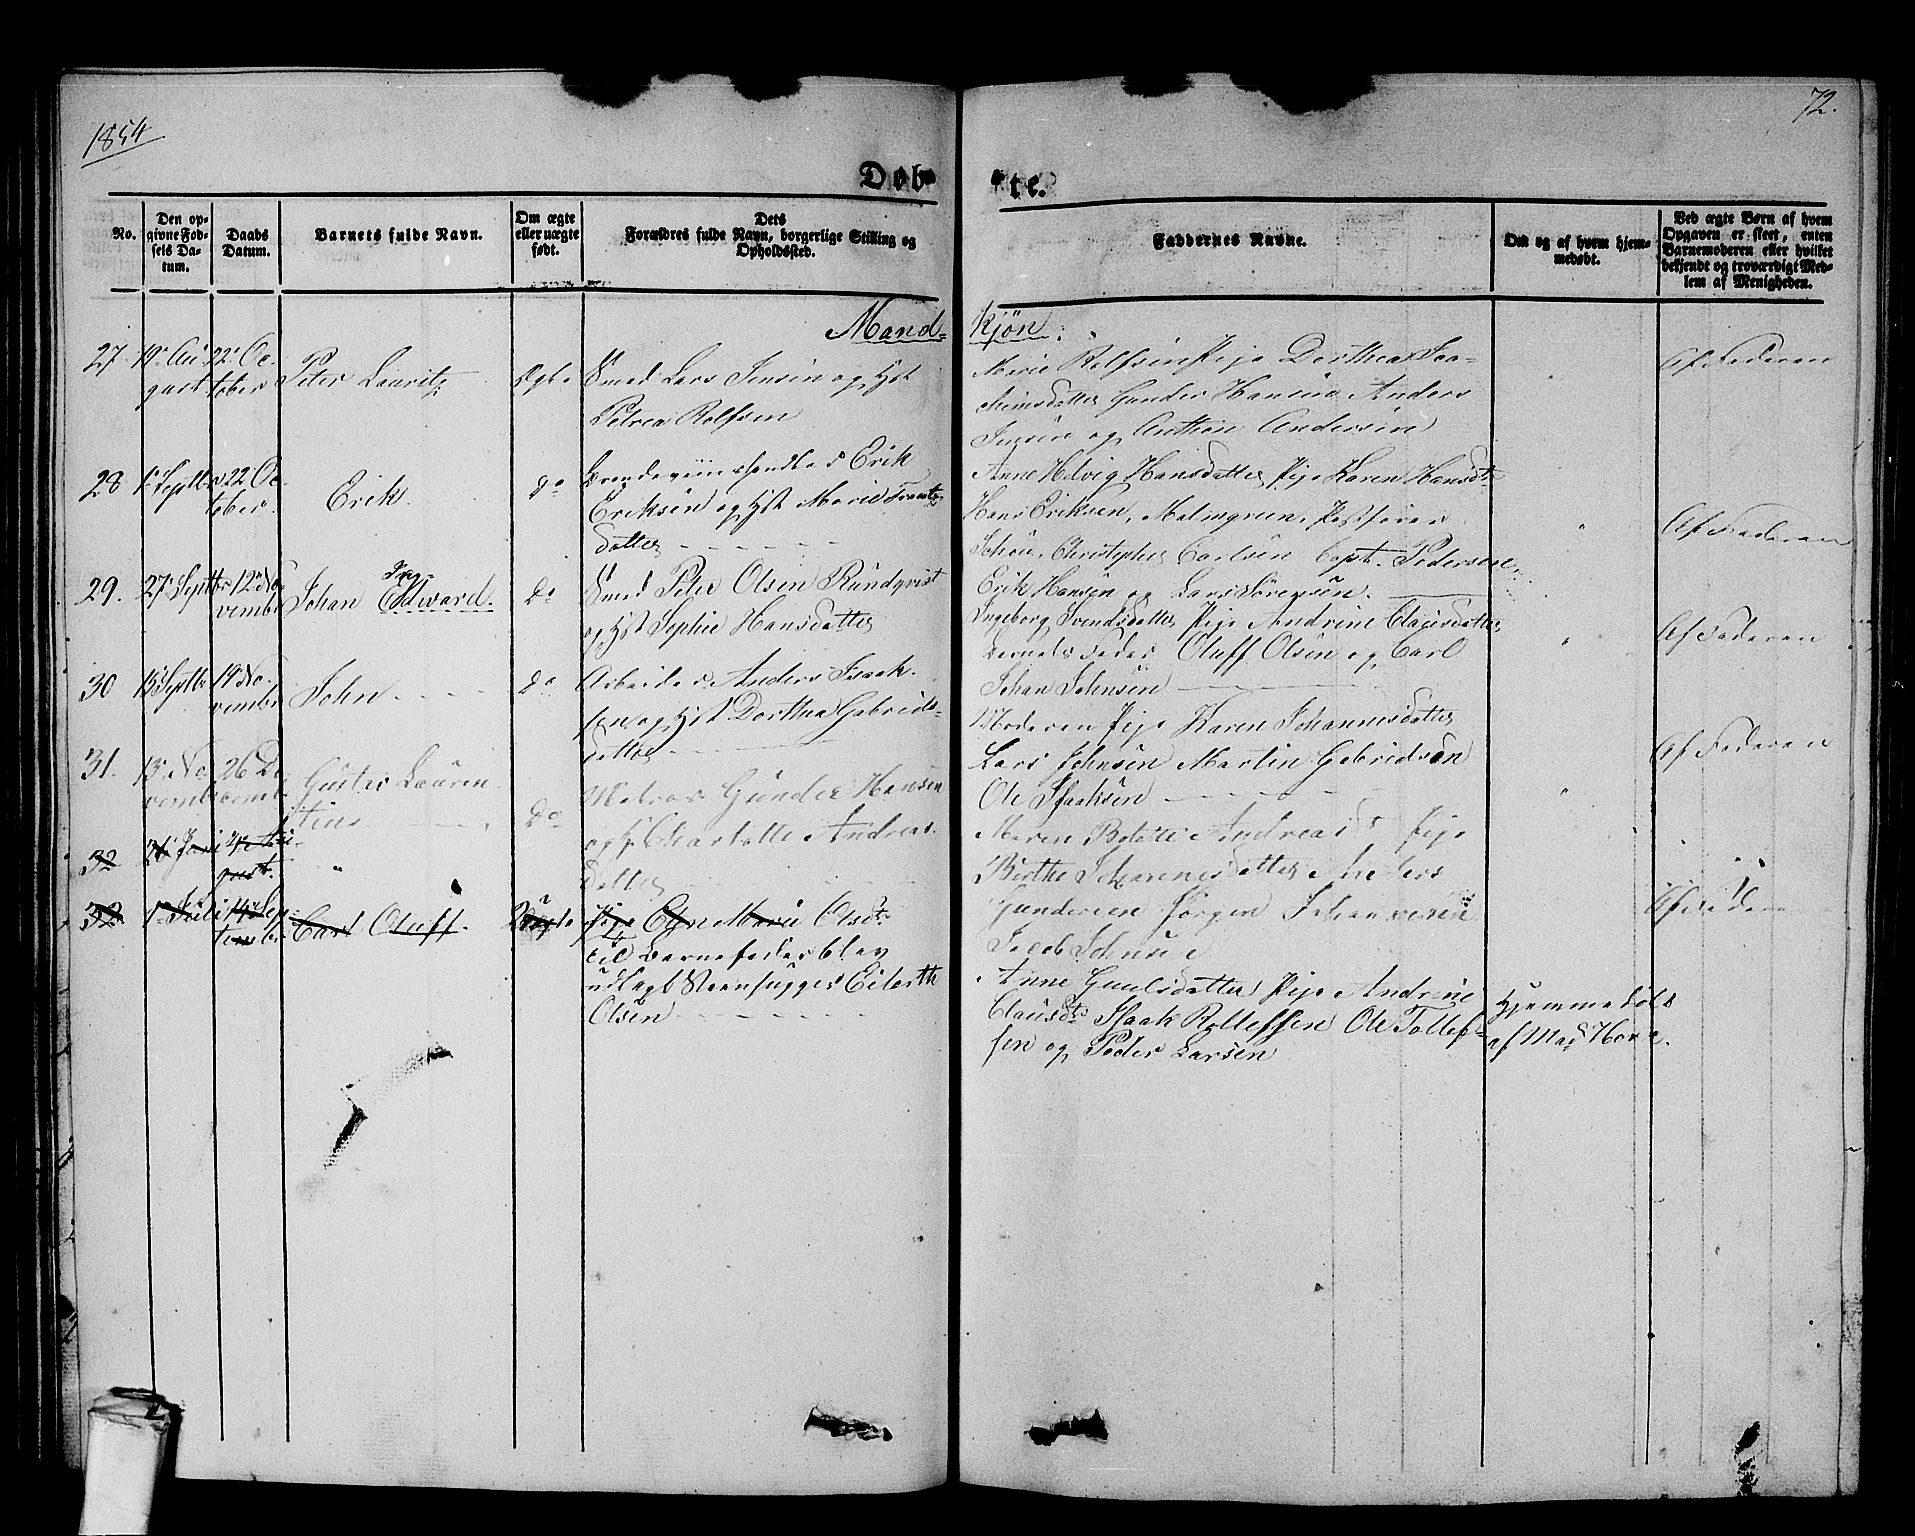 1854
72.
Døb-
te.
No.
Den op-
givne Fød-
sels Da-
tum.
Daabs
Datum.
Barnets fulde Navn.
Om ægte
eller uægte
født.
Dets
Forældres fulde Navn, borgerlige Stilling og
Opholdssted.
Faddernes Navne.
Om og af hvem hjem-
medøbt.
Ved ægte Børn af hvem
Opgaven er skeet, enten
Barnemoderen eller hvilket
bekjendt og troværdigt Med-
lem af Menigheden.
Mand-
kjön:
27. 19' Au 22' Oc
gust tober Peter Lauritz Ægte Smed Lars Jensen og Hst
Petrea Rolfsen
Marie Rolfsen Pige Dorthea Joa-
chimsdatter Gunder Hansen Anders
Jensen og Anthon Andersen
Af Faderen
28 1' Septbr 22 Oc
tober. Erik do Erik
Eriksen og Hst Marie
datter
Anne Helvig Hansdatter Pige Karen Hansdtr
Hans Eriksen, Malmgreen,
Christopher Carlsen Capt. Pedersen
Erik Hansen og Lars Sörensen.
Af Faderen
29. 27' Septbr 12' No
vembr Johan Edward. do Smed Peter Olsen Rundqvist
og Hst Sophie Hansdatter
Ingeborg Svendsdatter Pige Andrine Clausdatter
Barnets Fader Oluff Olsen og Carl
Johan Johnsen
Af Faderen
30 15' Septbr 19' No-
vembr John do Arbeider Anders Isaak-
sen og Hst Dorthea Gabriels-
datter
Moderen Pige Karen Johannesdatter
Lars Johnsen Martin Gabrielsen
Ole Isaaksen
Af Faderen
31. 13' No 26 De
vembr cembr Gustav Lauren
tius do Matros Gunder Hansen
og H. Charlotte Andreas-
datter
Maren Andreasdt Pige
Birthe Johannesdatter Anders
Gundersen Jörgen Johannesen
Jacob Johnsen
Af Faderen
32 Juni 4' Au-
gust.
32 1' Juli 14' Sep-
tembr Carl Oluff. Uægte Pige Marie Olsdtr
til Barnefader blev
udlagt Eilerth
Olsen
Anne Pige Andrine
Clausdtr Isaak Rolfessen Ole Tollef-
sen og Peder Larsen
Hjemmedöbt
af Mad Horn.